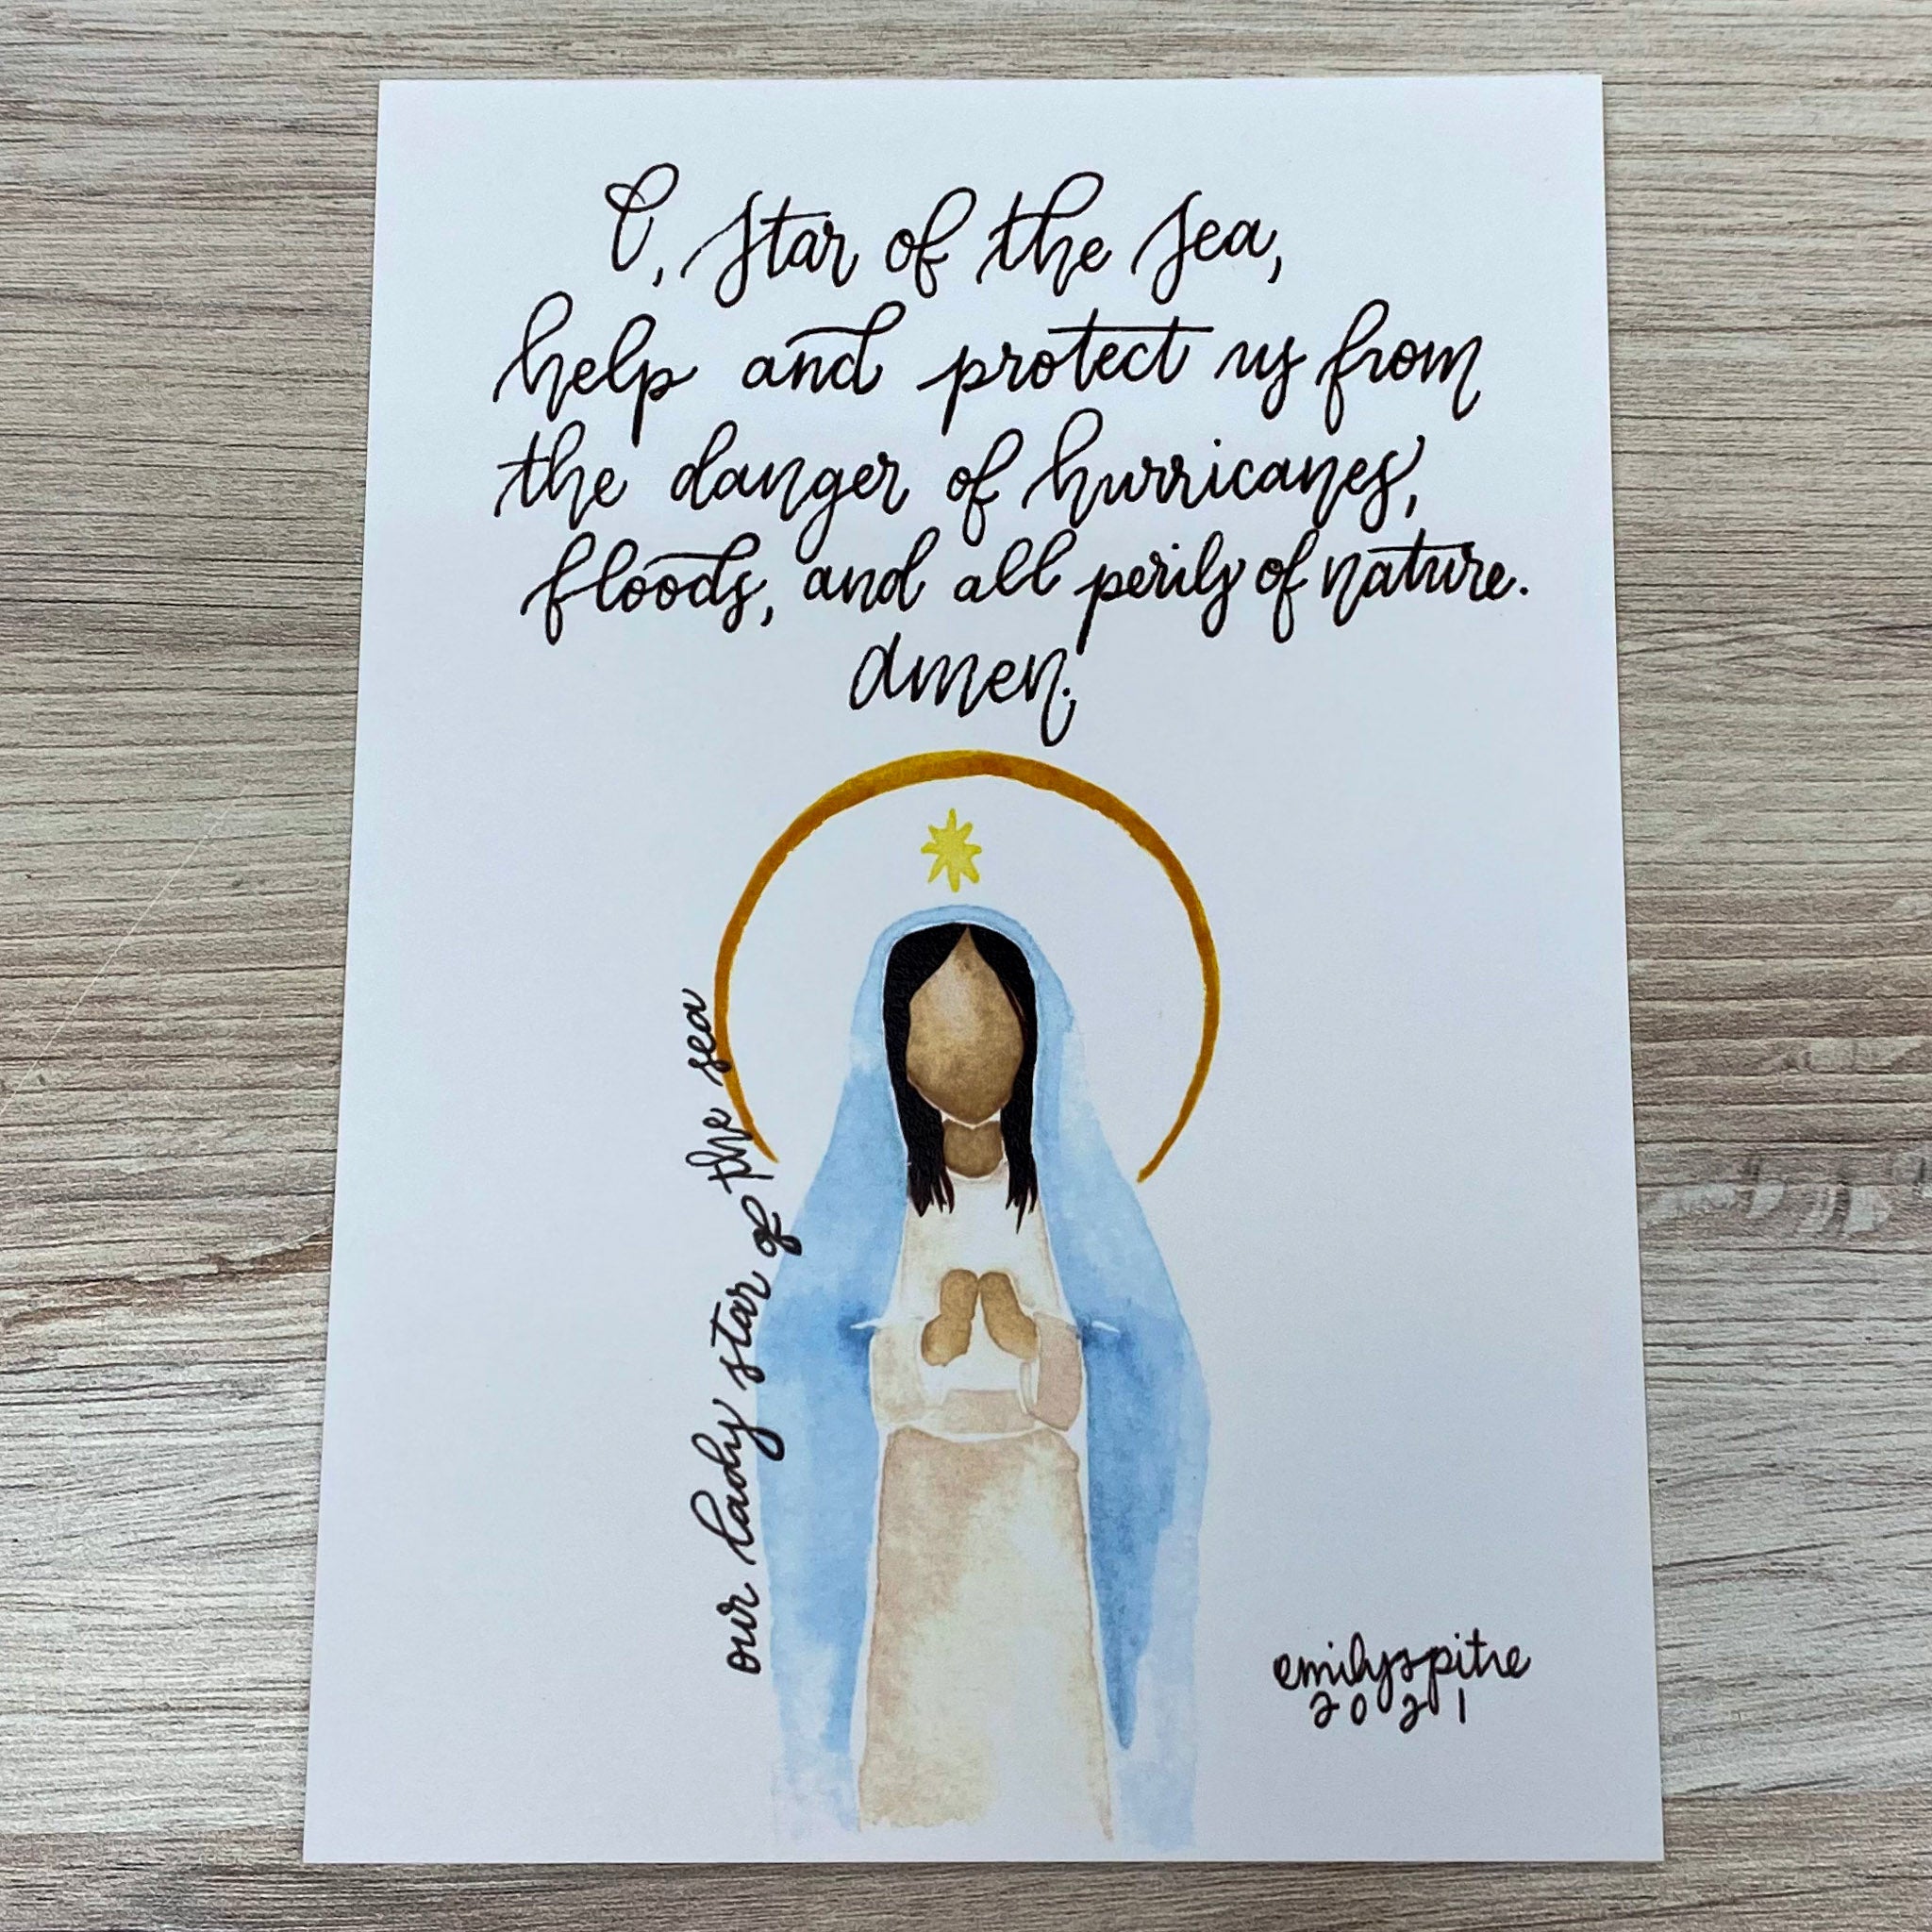 O, star of the sea,
help and protect us from
the danger of hurricanes,
floods, and all perils of nature.
amen.
our lady star of the sea
emilyspitre
2021